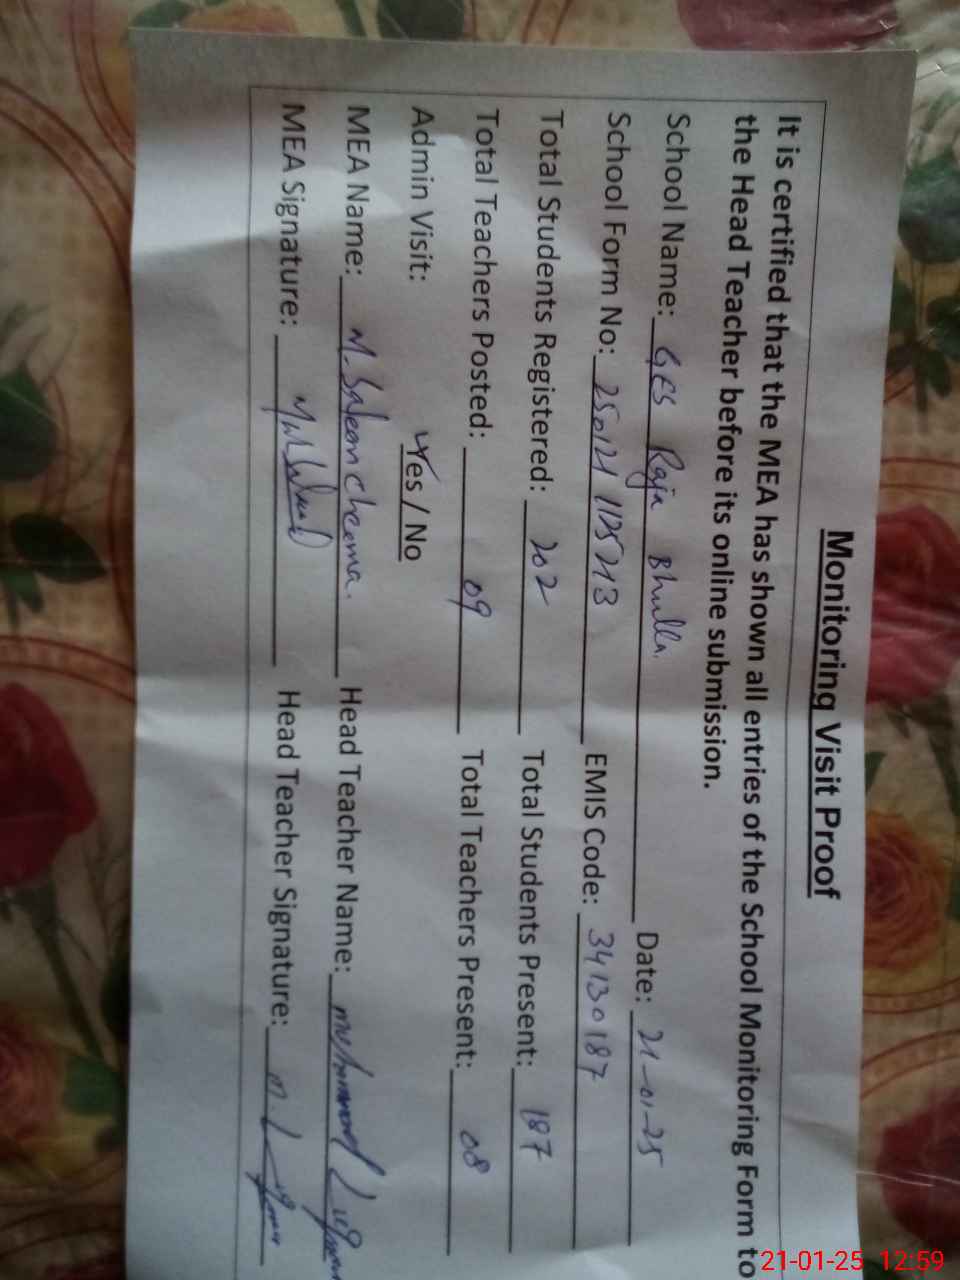 Monitoring Visit Proof
It is certified that the MEA has shown all entries of the School Monitoring Form to
the Head Teacher before its online submission.
School Name: GES Raja Bhulla Date: 21-01-25
School Form No: 250121 1125213 EMIS Code: 34130187
Total Students Registered: 202 Total Students Present: 187
Total Teachers Posted: 09 Total Teachers Present: 08
Admin Visit: Yes / No
MEA Name: M. Saleem cheema. Head Teacher Name: Muhammad
MEA Signature: Head Teacher Signature:
21-01-25 12:59